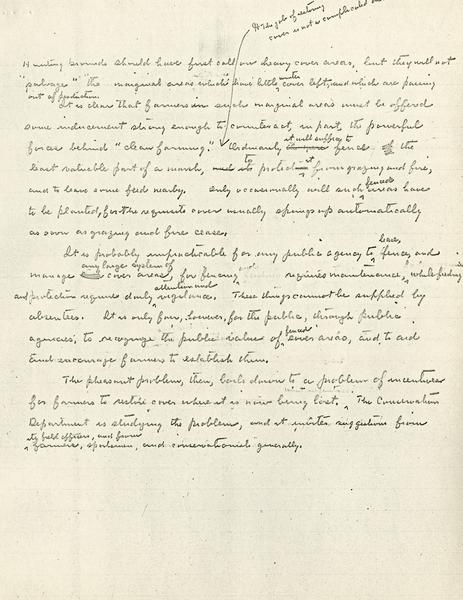 The job of restoring
cover is not a complicated one
Hunting grounds should have first call on heavy cover areas, but they will not
"salvage" the marginal areas which have little winter cover left, and which are passing
out of production.
It is clear that farmers in such marginal areas must be offered
some inducement strong enough to counteract, in part, the powerful
force behind "clean farming." Ordinarily it will suffice to fence off the
least valuable part of a marsh, to protect it from grazing and fire,
and to leave some feed nearby. Only occasionally will such fenced areas have
to be planted, for the requisite cover usually springs up automatically
as soon as grazing and fire cease.
It is probably impracticable for any public agency to lease, fence, and
manage any large system of cover areas, for fencing requires maintenance, while feeding
and protection require daily attention and vigilance. These things cannot be supplied by
absentees. It is only fair, however, for the public, through public
agencies, to recognize the public value of fenced cover areas, and to aid
and encourage farmers to establish them.
The pheasant problem, then, boils down to a problem of incentives
for farmers to restore cover where it is now being lost. The Conservation
Department is studying the problem, and it invites suggestions from
its field officers, and from
farmers, sportsmen, and conservationists generally.